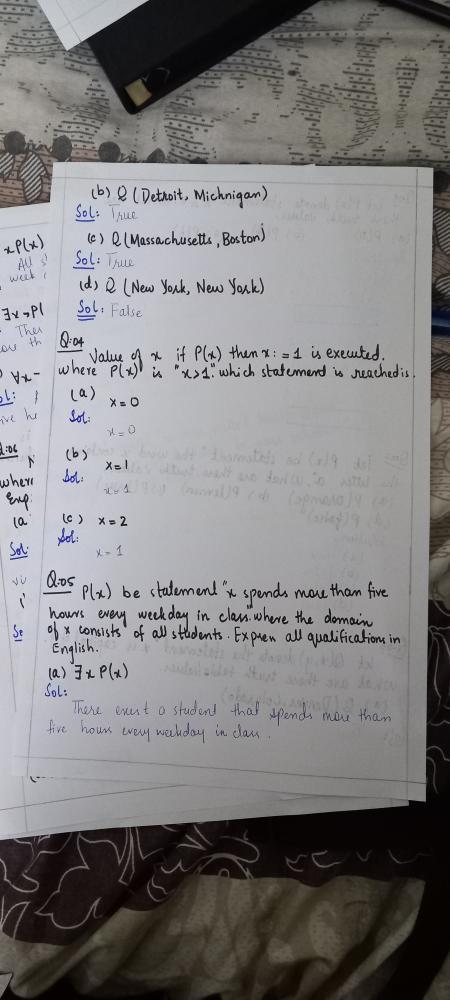 (b) Q (Detroit, Michnigan)
Sol: True
(c) Q (Massachusetts, Boston)
Sol: True
(d) Q (New York, New York)
Sol: False
Q:04
Value of x if P(x) then x: = 1 is executed.
where P(x) is "x>1". which statement is reached is.
(a) x = 0
Sol:
x = 0
(b) x = 1
Sol:
x = 1
(c) x = 2
Sol:
x = 1
Q:05
P(x) be statement "x spends more than five
hours every weekday in class", where the domain
of x consists of all students. Expren all qualifications in
English.
(a) ∃x P(x)
Sol:
There exist a student that spends more than
five hours every weekday in class.
xP(x)
week
Ther
∀x
Q:06
where
Exp
(a
Sol: